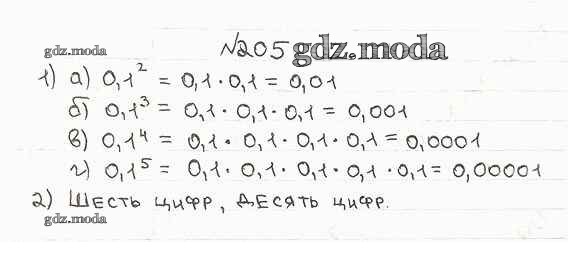 gdz.moda №205 gdz.moda
1) а) 0,1² = 0,1 · 0,1 = 0,01
б) 0,1³ = 0,1 · 0,1 · 0,1 = 0,001
в) 0,1⁴ = 0,1 · 0,1 · 0,1 · 0,1 = 0,0001
г) 0,1⁵ = 0,1 · 0,1 · 0,1 · 0,1 · 0,1 = 0,00001
2) Шесть цифр, десять цифр.
gdz.moda